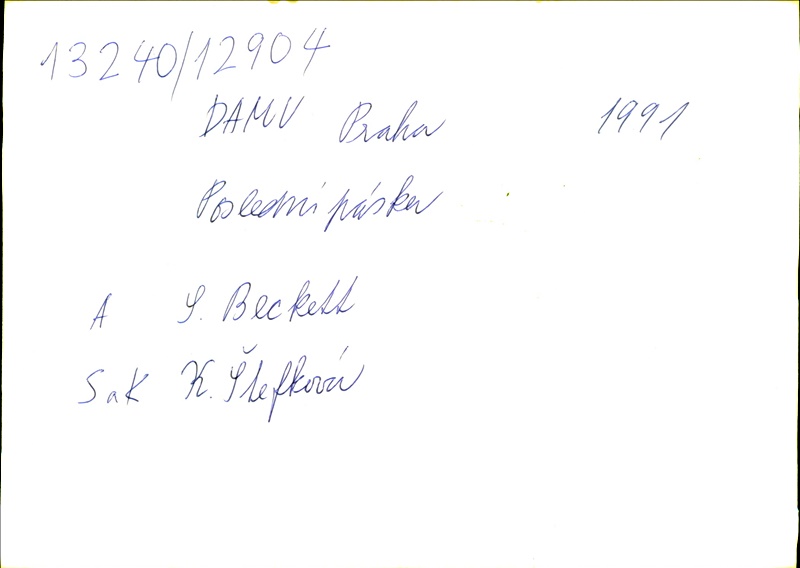 13240/12904
DAMU Praha 1991
Poslední páska
A S. Beckett
SaK K. Štefková